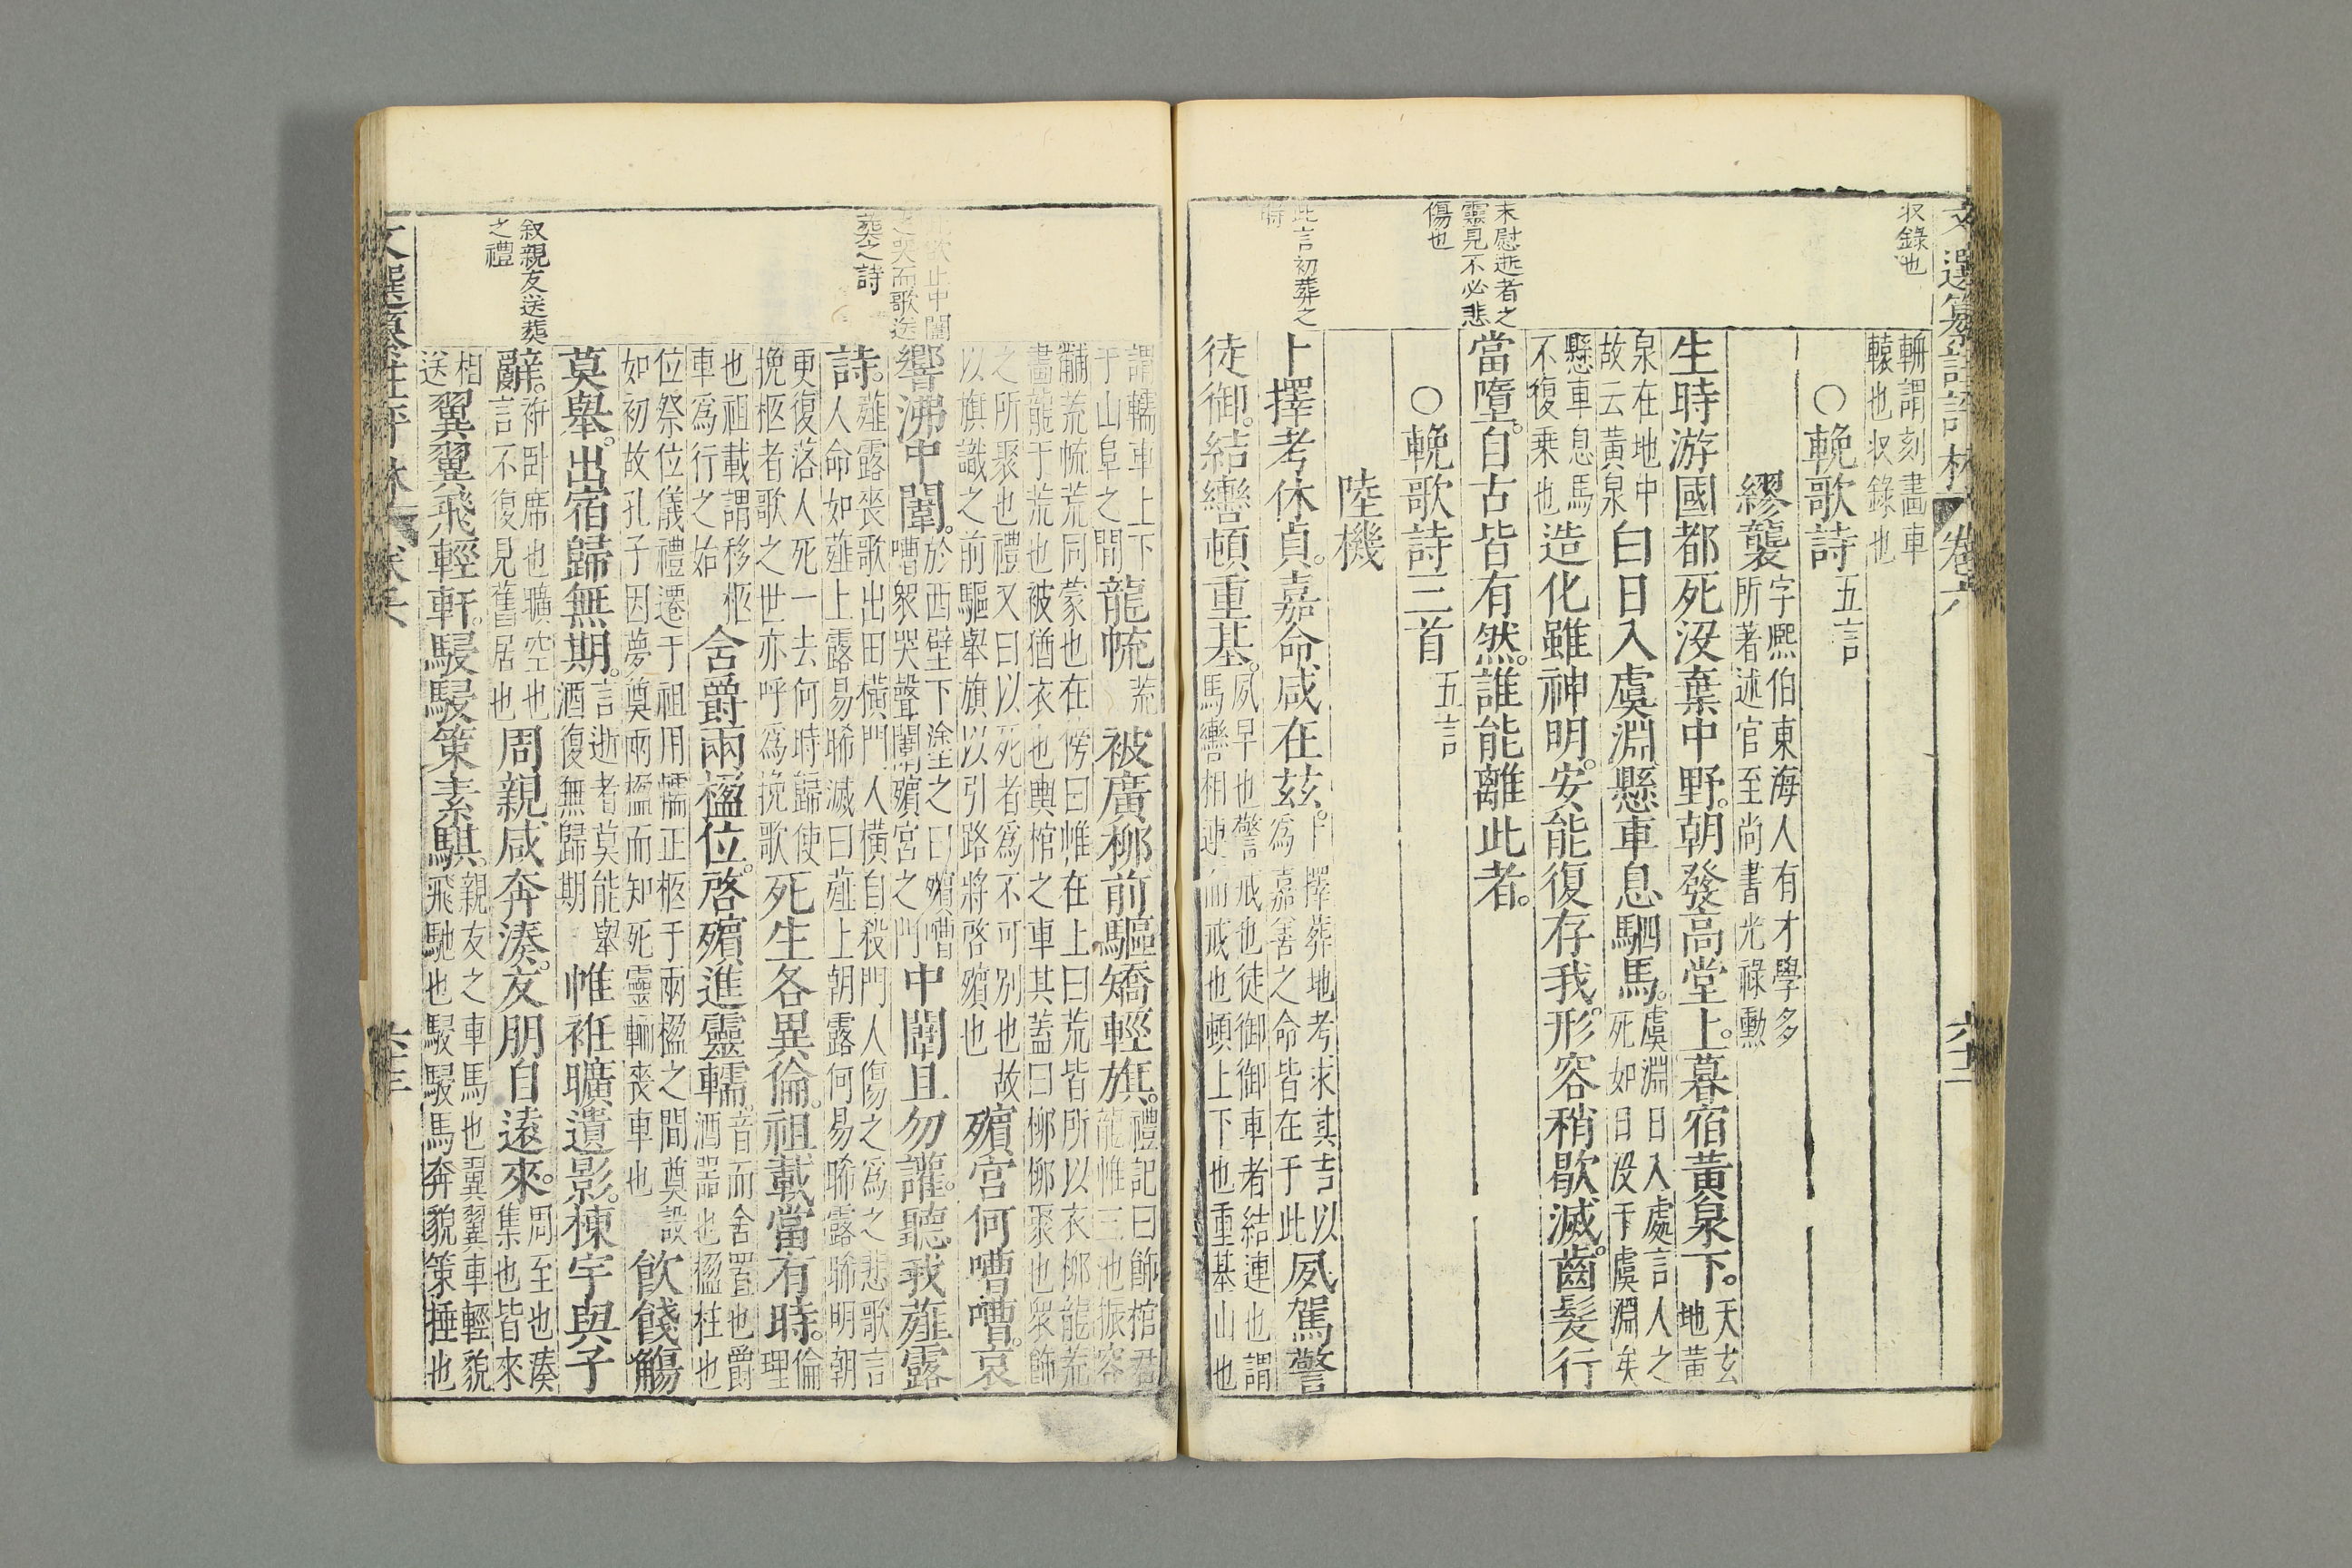 文選纂註評林 卷六 六十二
収錄也
輈謂刻畫車
轅也収錄也
○輓歌詩 五言
繆襲 字熙伯東海人有才學多
所著述官至尚書光祿勳
生時游國都死沒棄中野。朝發高堂上。暮宿黃泉下。 天玄地黃
泉在地中故云黃泉 白日入虞淵懸車息駟馬。 虞淵日入處言人之死如日沒于虞淵矣
懸車息馬不復乗也 造化雖神明。安能復存我。形容稍歇滅。齒髮行
末慰逝者之
靈見不必悲
傷也
當墮。自古皆有然。誰能離此者。
○輓歌詩三首 五言
陸機
此言初葬之
時
卜擇考休貞。嘉命咸在茲。 卜擇葬地考求其吉以爲嘉善之命皆在于此 夙駕警
徒御。結轡頓重基。 夙早也警戒也徒御御車者結連也謂馬轡相連而戒也頓上下也重基山也
謂轜車上下于山阜之間 龍㡆 荒 被廣柳前驅矯輕旗。 禮記曰飾棺君龍帷三池振容
黼荒㡆荒同蒙也在傍曰帷在上曰荒皆所以衣柳龍荒
畫龍于荒也被猶衣也輿棺之車其蓋曰柳柳聚也衆飾
之所聚也禮又曰以死者爲不可别也故
以旗識之前驅舉旗以引路將啓殯也 殯宮何嘈嘈。哀
之哭而歌送
葬之詩
響沸中闈。 於西壁下塗之曰殯嘈嘈衆哭聲闈殯宮之門 中闈且勿讙。聽我薤露
詩。 薤露喪歌出田橫門人橫自殺門人傷之爲之悲歌言人命如薤上露易晞滅曰薤上朝露何易晞露晞明朝
更復落人死一去何時歸使挽柩者歌之世亦呼爲挽歌 死生各異倫。祖載當有時。 倫理
也祖載謂移柩車爲行之始 舍爵兩楹位。啓殯進靈轜。 音而舍置也爵酒器也楹柱也
位祭位儀禮遷于祖用轜正柩于兩楹之間奠設
如初故孔子因夢奠兩楹而知死靈輀喪車也 飲餞觴
莫舉。出宿歸無期。 言逝者莫能舉酒復無歸期 帷袵曠遺影。棟宇與子
叙親友送葬
之禮
辭。 袵臥席也曠空也言不復見舊居也 周親咸奔湊。友朋自遠來。 周至也湊集也皆來
相送 翼翼飛輕軒。駸駸策素騏。 親友之車馬也翼翼車輕貌飛馳也駸駸馬奔貌策捶也
六十三